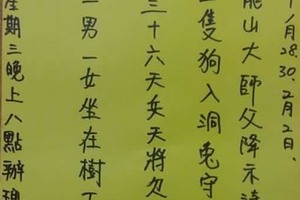 1月28.30.2月2日、
山大師父降示
隻狗入洞兔守
三十六天兵天將欠
一男一女坐在樹
星期三晚上八點辦